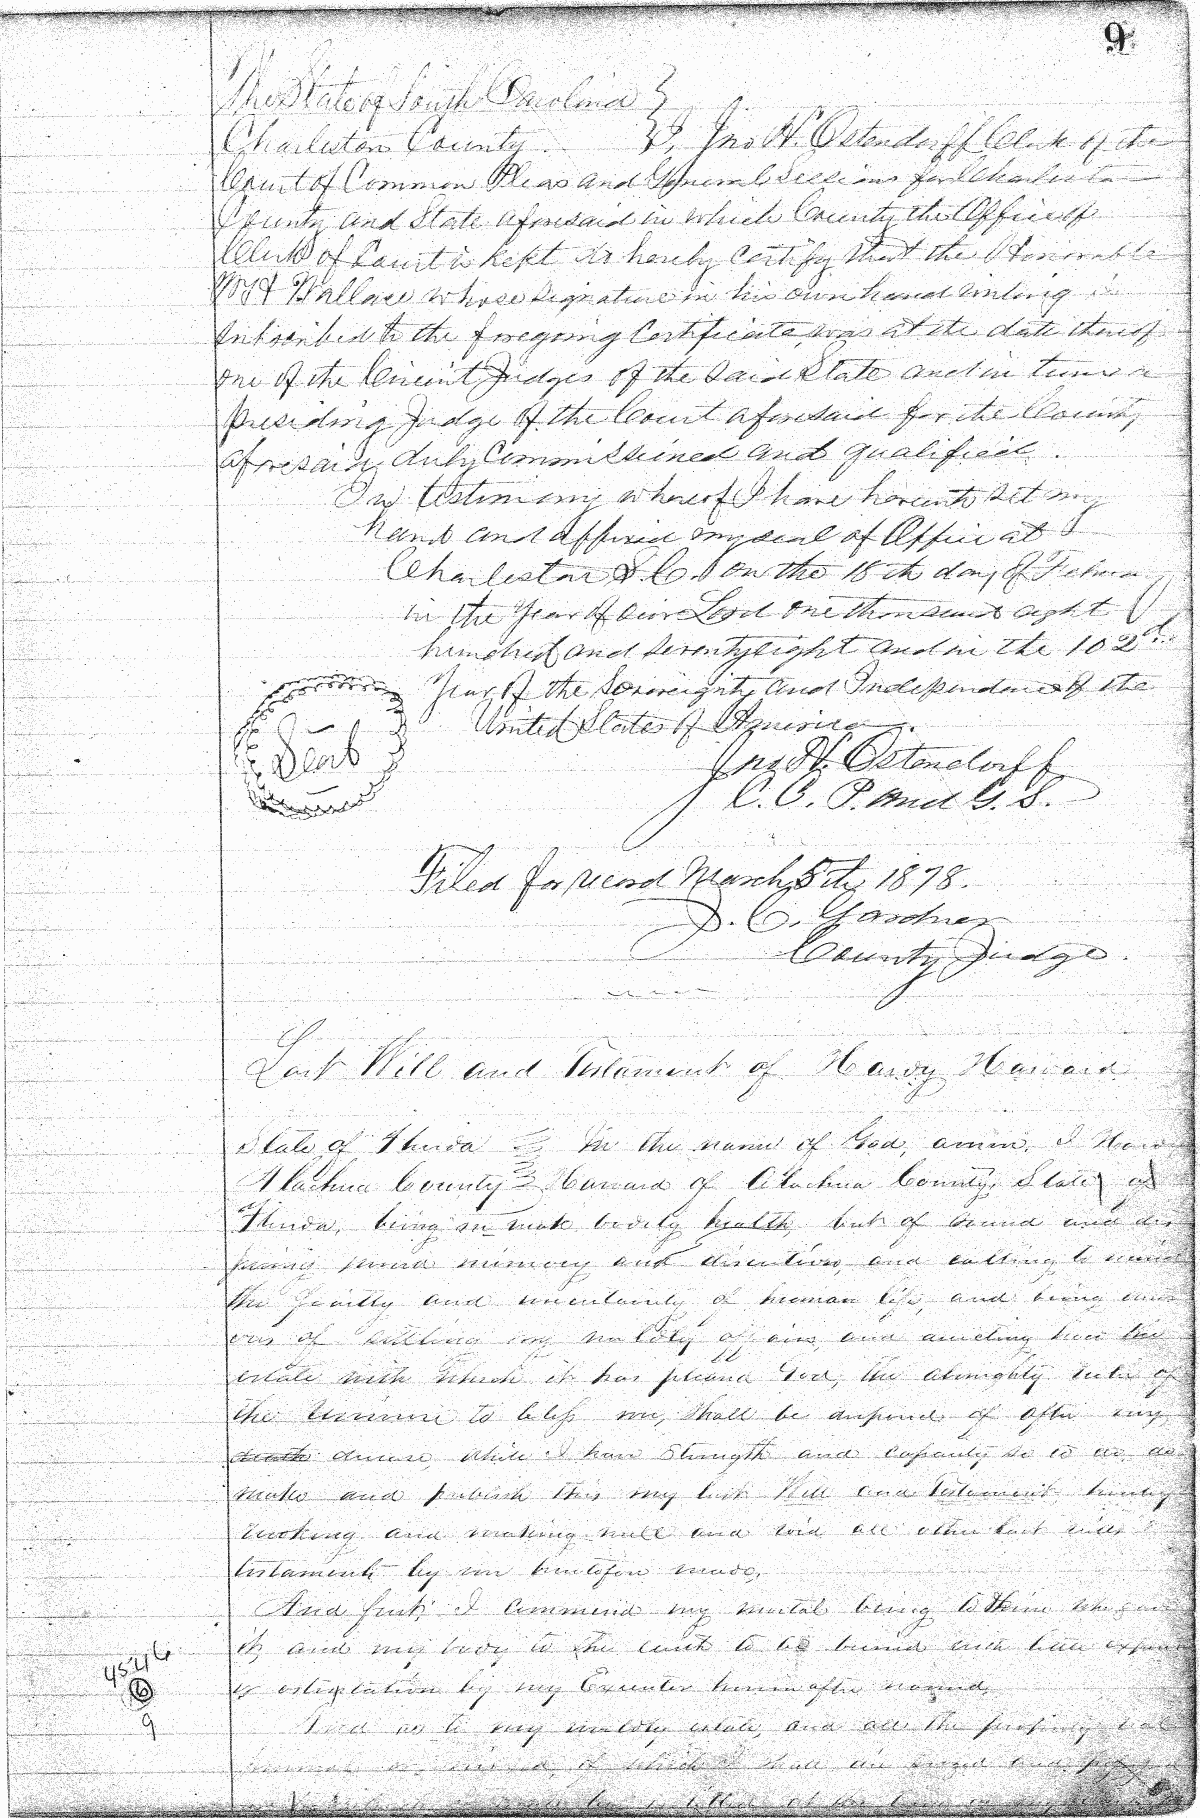 9
The State of South Carolina }
Charleston County. } I, Jno H. Ostendorff Clerk of the
Court of Common Pleas and General Sessions for Charleston
County and State aforesaid in which County the Office of
Clerk of Court is kept do hereby certify that the Honorable
W H Wallace whose signature in his own hand writing is
subscribed to the foregoing Certificate was at the date thereof
one of the Circuit Judges of the said State and in turn a
presiding Judge of the Court aforesaid for the County
aforesaid, duly Commissioned and qualified.
In testimony whereof I have hereunto set my
hand and affixed my seal of Office at
Charleston S.C. on the 18th day of
in the Year of our Lord one thousand eight
hundred and seventy eight and in the 102d
Year of the Sovereignty and Independence of the
United States of America.
Seal
Jno H. Ostendorff
C. C. P. and G. S.
Filed for record March 5th, 1878.
J. C. Gardner
County Judge.
Last Will and Testament of Harvy Harvard
State of Florida } In the name of God, amen. I
Alachua County } Harvard of Alachua County, State of
Florida, being in weak bodily health, but of sound and dis
posing mind memory and discretion, and calling to mind
the frailty and uncertainty of human life, and being
ous of settling my worldly affairs, and directing how the
estate with which it has pleased God, the almighty ruler of
the Universe to bless me, shall be disposed of after my
death decease, while I have strength and capacity so to do, do
make and publish this my last Will and Testament, hereby
revoking and making null and void all other last wills &
testaments by me heretofore made,
And first I commend my mortal being to Him who gave
it, and my body to the earth to be buried with little expense
or ostentation by my Executor herein after named,
And as to my worldly estate, and all the property real
personal or mixed, of which I shall die seized and
4546
6
9